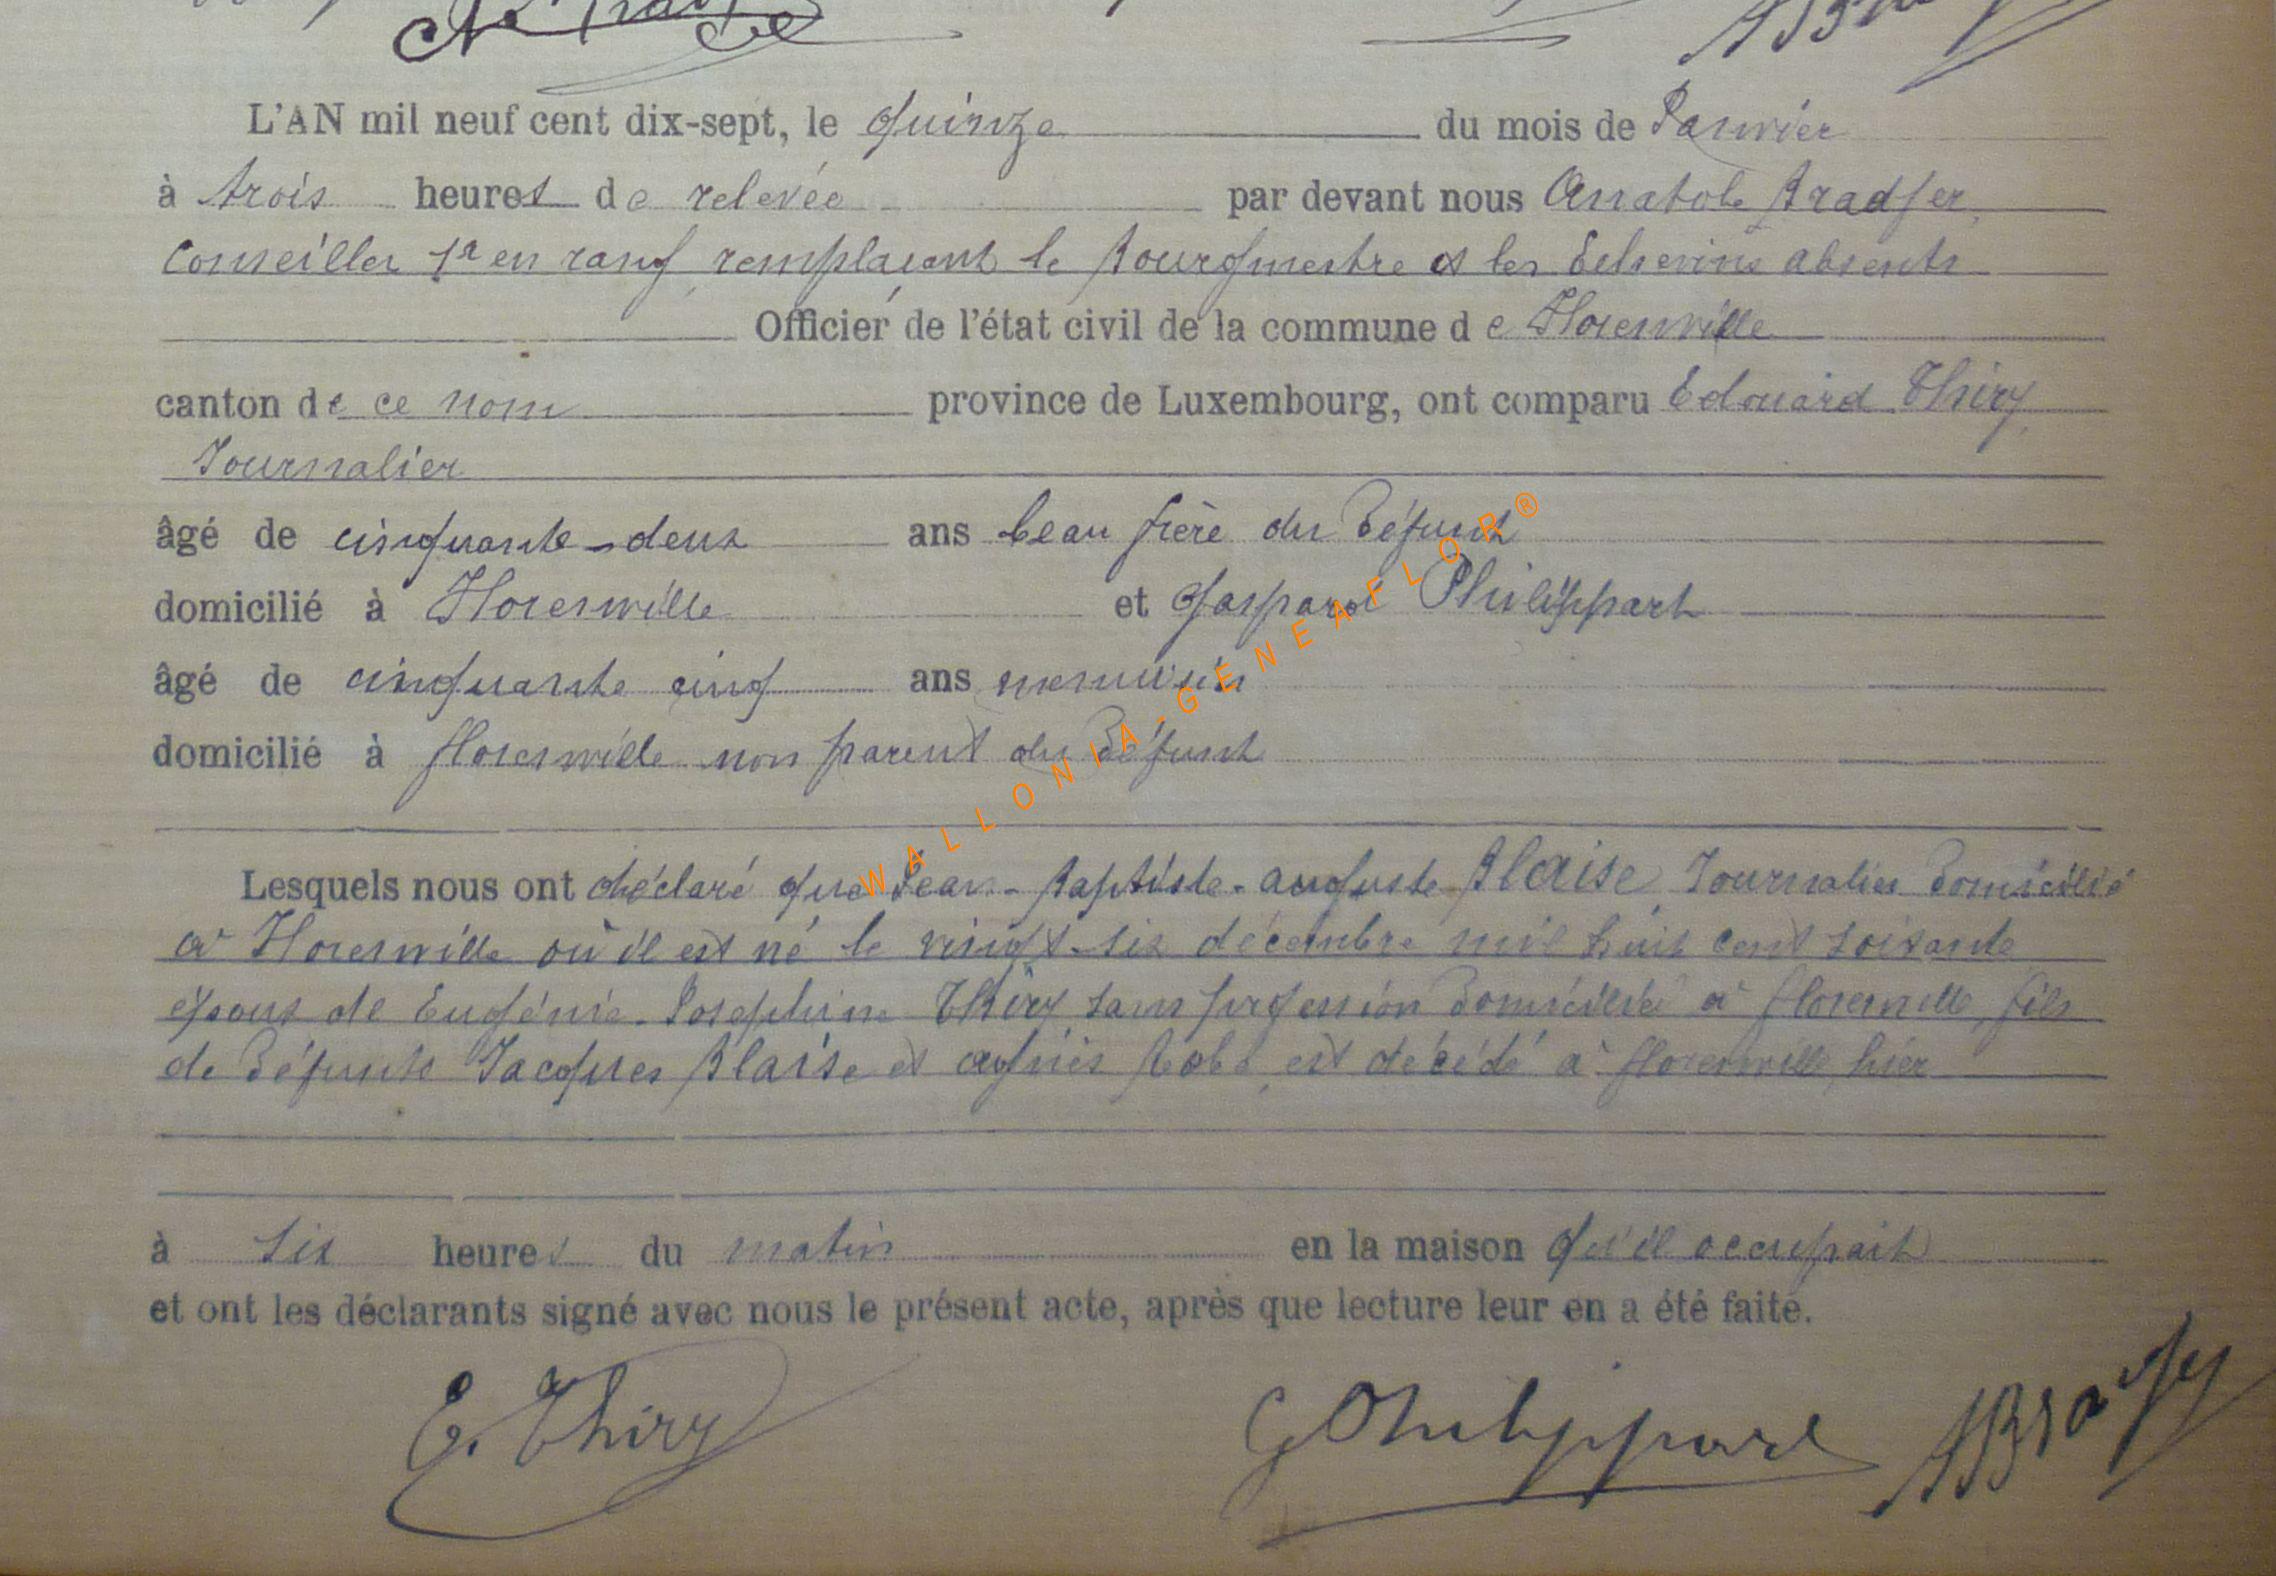 L'AN mil neuf cent dix-sept, le quinze du mois de Janvier
à trois heures de relevée par devant nous Anatole Bradfer,
Conseiller 1r en rang, remplaçant le Bourgmestre et les Echevins absents
Officier de l'état civil de la commune de Florenville
canton de ce nom province de Luxembourg, ont comparu Edouard Thiry,
Journalier
âgé de cinquante-deux ans beau frère du Défunt
domicilié à Florenville et Gaspard Philippart
âgé de cinquante cinq ans menuisier
domicilié à florenville non parent du Défunt
Lesquels nous ont déclaré que Jean-Baptiste-auguste Blaise, Journalier Domicilié
à Florenville où il est né le vingt-six décembre mil huit cent soixante
époux de Eugénie-Josephine Thiry sans profession Domiciliée à florenville, fils
de Défunts Jacques Blaise et agnès Robe, est décédé à florenville, hier
à six heures du matin en la maison qu'il occupait
et ont les déclarants signé avec nous le présent acte, après que lecture leur en a été faite.
E. Thiry G Philippart ABradfer
WALLONIA-GENEAFLOR®